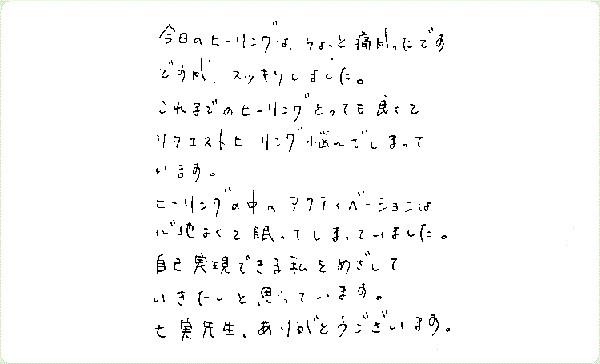 今日のヒーリングは、ちょっと痛かったです
ですが、スッキリしました。
これまでのヒーリングとっても良くて
リクエストヒーリング悩んでしまって
います。
ヒーリングの中のアクティベーションは
心地よくて眠ってしまっていました。
自己実現できる私をめざして
いきたいと思っています。
七実先生、ありがとうございます。